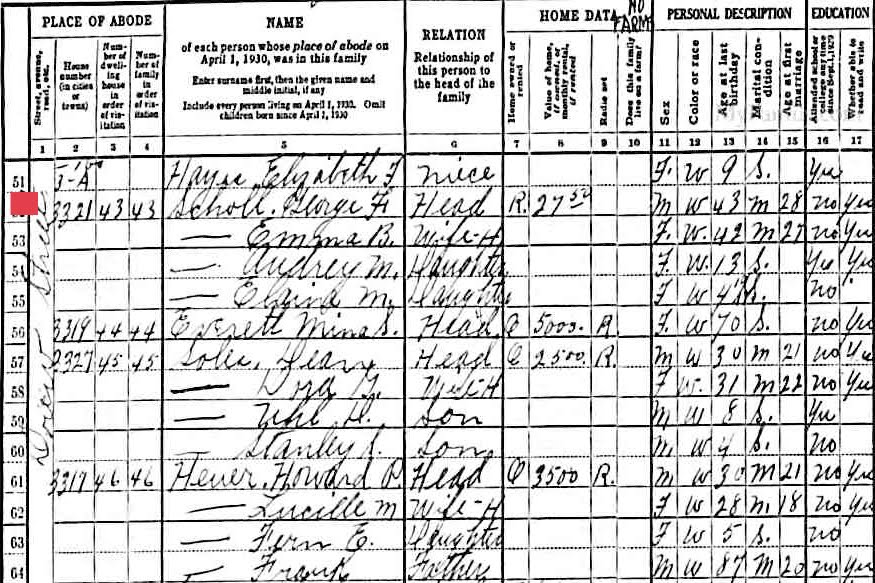 PLACE OF ABODE NAME RELATION HOME DATA NO FARM PERSONAL DESCRIPTION EDUCATION
Street, avenue, road, etc. House number (in cities or towns) Number of dwelling house in order of visitation Number of family in order of visitation of each person whose place of abode on April 1, 1930, was in this family Enter surname first, then the given name and middle initial, if any Include every person living on April 1, 1930. Omit children born since April 1, 1930 Relationship of this person to the head of the family Home owned or rented Value of home, if owned, or monthly rental, if rented Radio set Does this family live on a farm? Sex Color or race Age at last birthday Marital condition Age at first marriage Attended school or college any time since Sept. 1, 1929 Whether able to read and write
1 2 3 4 5 6 7 8 9 10 11 12 13 14 15 16 17
51 Elizabeth F niece F. W 9 S. Yes
3321 43 43 Scholl, George F. Head R. 27 50 M W 43 M 28 no Yes
53 — Emma B. Wife-H F. W. 42 M 27 no Yes
54 — Audrey M. Daughter F. W. 13 S. Yes Yes
55 — M. Daughter F W S. no
56 3319 44 44 Everett Mina S. Head O 5000. R. F. W 70 S. no Yes
57 3327 45 45 Head O 2500. R. M W 30 M 21 no Yes
58 — Wife-H F W. 31 M 22 no Yes
59 — Son M W 8 S. Yes
60 — Stanley Son M. W 4 S. no
61 3317 46 46 Howard P. Head O 3500 R. M W 30 M 21 no Yes
62 — Lucille M Wife-H F W 28 M. 18 no Yes
63 — Fern E. Daughter F W 5 S. no
64 — Frank Father M W 87 M 20 no Yes